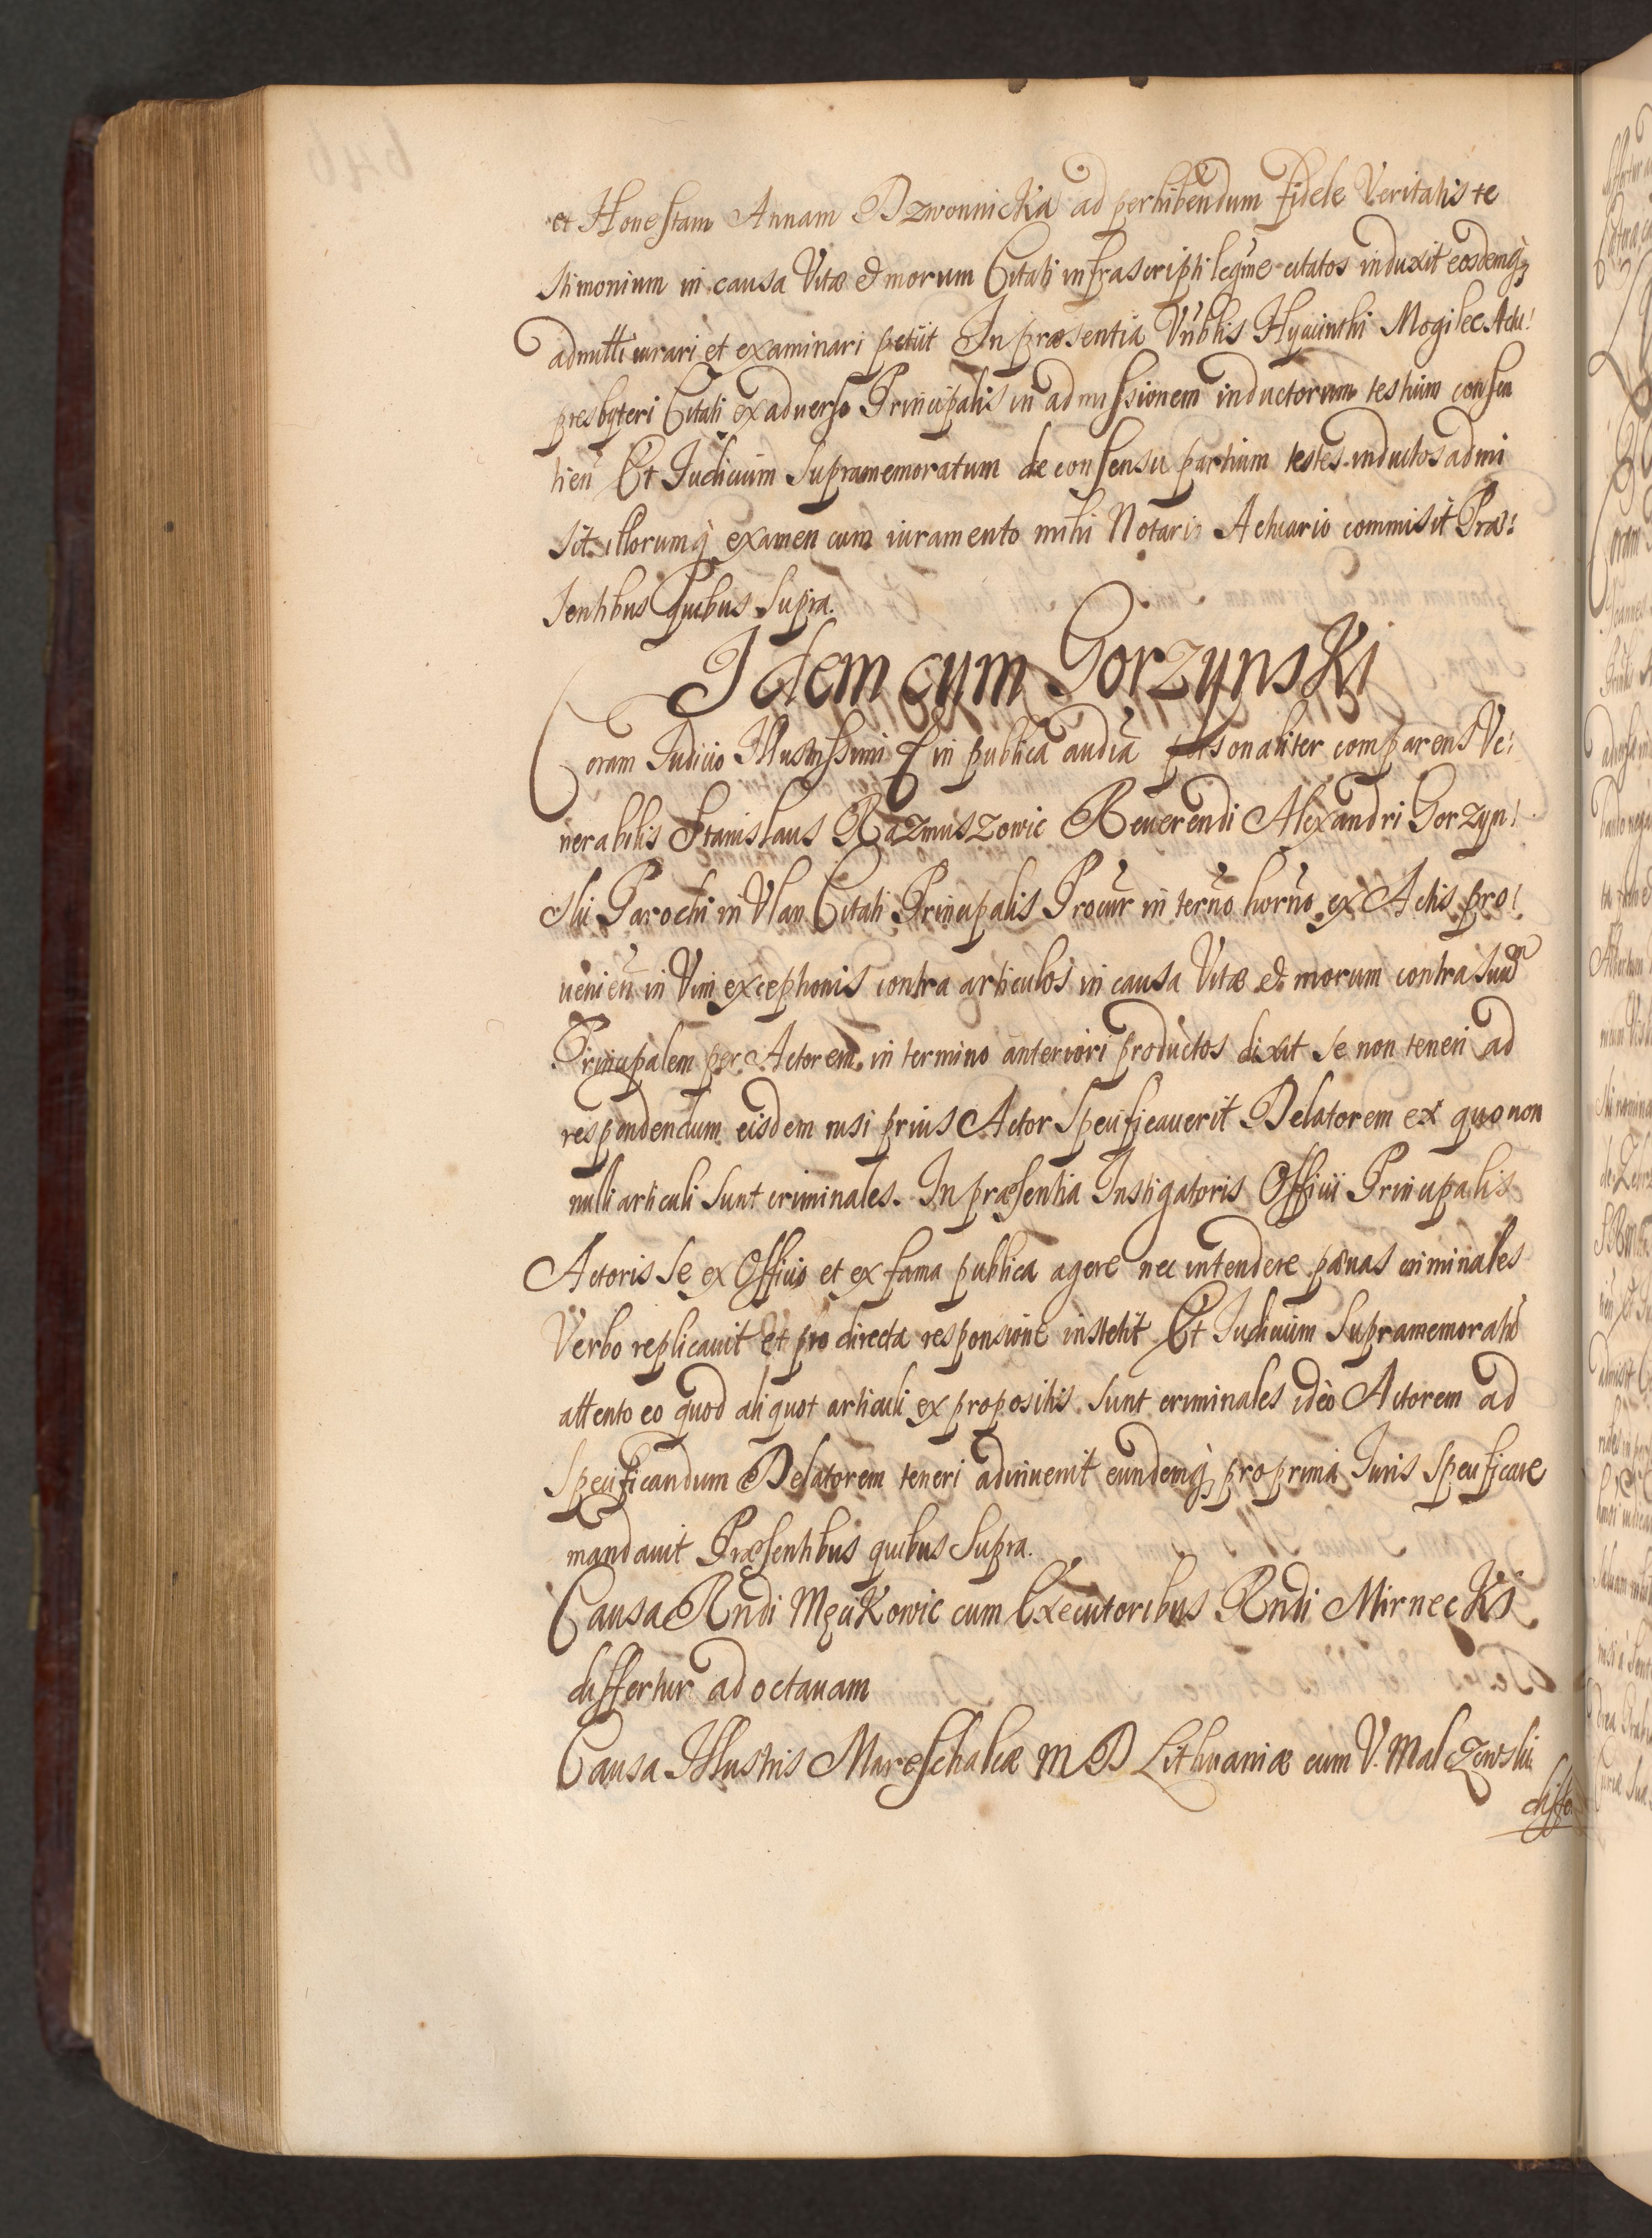 et Honestam Annam Dzwonnicka ad perhibendum fidele Veritatis te
stimonium in causa Vitæ et morum Citati infrascripti legme citatos induxit eosdemq3
admitti iurari et examinari petiit In præsentia Vnblis Hyacinthi Mogilec Actu
presbyteri Citati ex aduerso Principalis in admissionem inductorum testium consen
tien Et Iudicium Supramemoratum de consensu partium testes inductos admi
sit illorumq examen cum iuramento mihi Notario Actuario commisit Præ
sentibus quibus Supra.
Idem cum Gorzynski
Coram Iudicio Illustrissimi in publica audia personaliter comparens Ve
nerabilis Stanislaus Razmuszowic Reuerendi Alexandri Gorzyn
ski Parochi in Vlan Citati Principalis Procur in terno horno ex Actis pro
uenien in Vim exceptionis contra articulos in causa Vitæ et morum contra suum
Principalem per Actorem in termino anteriori productos dixit se non teneri ad
respondendum eisdem nisi prius Actor Specificauerit Delatorem ex quo non
nulli articuli sunt criminales. In præsentia Instigatoris Officii Principalis
Actoris se ex Officio et ex fama publica agere nec intendere pænas criminales
Verbo replicauit et pro directa responsione institit Et Iudicium Supramemoratū
attento eo quod aliquot articuli ex propositis sunt criminales ideo Actorem ad
Specificandum Delatorem teneri adinuenit eundemq3 pro prima Iuris Specificare
mandauit Præsentibus quibus Supra.
Causa Rndi Męcikowic cum Executoribus Rndi Mirnecki
differtur ad octauam
Causa Illustris Mareschalcæ M D Lithuaniæ cum V. Malczewski
differ